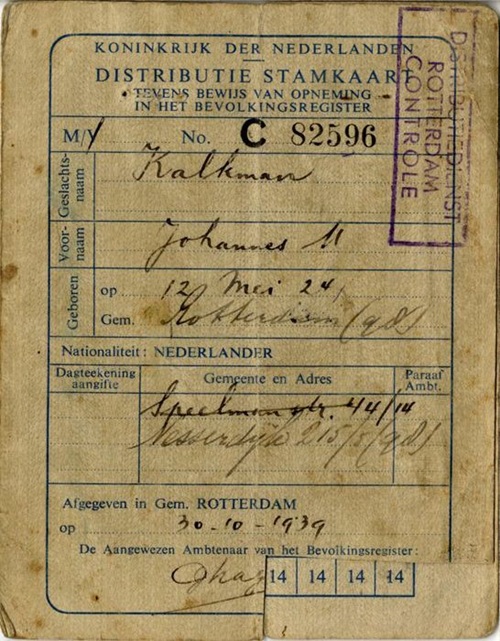 KONINKRIJK DER NEDERLANDEN
DISTRIBUTIE STAMKAART
TEVENS BEWIJS VAN OPNEMING
IN HET BEVOLKINGSREGISTER
DISTRIBUTIEDIENST
ROTTERDAM
CONTROLE
M/V No. C 82596
Geslachts-
naam
Kalkman
Voor-
naam
Johannes M
Geboren
op 12 Mei 24
Gem. Rotterdam (98)
Nationaliteit: NEDERLANDER
Dagteekening
aangifte
Gemeente en Adres
Paraaf
Ambt.
Speelmanstr. 44/14
215/5 (98)
Afgegeven in Gem. ROTTERDAM
op 30-10-1939
De Aangewezen Ambtenaar van het Bevolkingsregister:
14 14 14 14